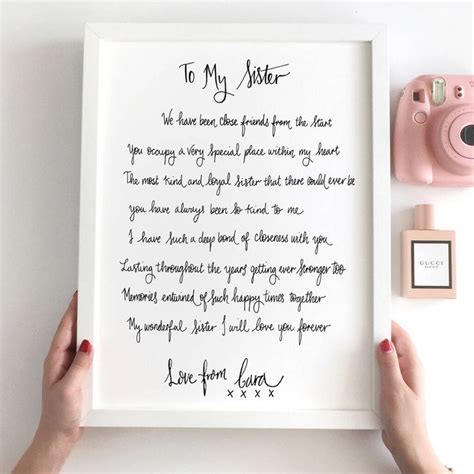 To My Sister
We have been close friends from the start
You occupy a very special place within my heart
The most kind and loyal sister that there could ever be
you have always been so kind to me
I have such a deep bond of closeness with you
Lasting throughout the years getting ever stronger too
Memories entwined of such happy times together
My wonderful sister I will love you forever
Love from Cara
x x x x
GUCCI